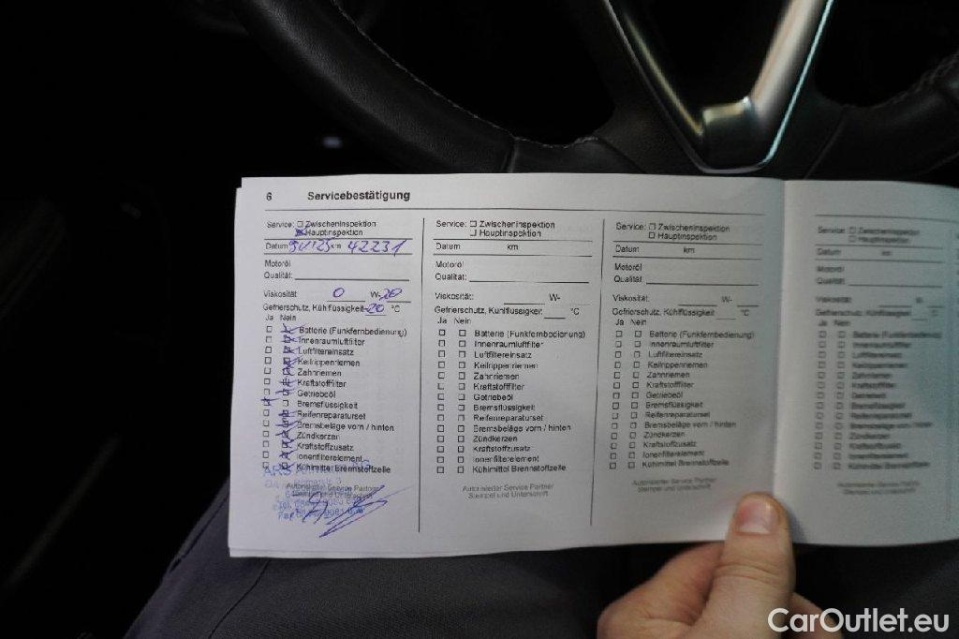 6 Servicebestätigung
Service: Zwischeninspektion
Hauptinspektion
Datum km 42231
Motoröl
Qualität:
Viskosität: 0 W-20
Gefrierschutz, Kühlflüssigkeit -20 °C
Ja Nein
Batterie (Funkfernbedienung)
Innenraumluftfilter
Luftfiltereinsatz
Keilrippenriemen
Zahnriemen
Kraftstofffilter
Getriebeöl
Bremsflüssigkeit
Reifenreparaturset
Bremsbeläge vorn / hinten
Zündkerzen
Kraftstoffzusatz
Ionenfilterelement
Kühlmittel Brennstoffzelle
Autorisierter Service Partner
Stempel und Unterschrift
Service: Zwischeninspektion
Hauptinspektion
Datum km
Motoröl
Qualität:
Viskosität: W-
Gefrierschutz, Kühlflüssigkeit: °C
Ja Nein
Batterie (Funkfernbedienung)
Innenraumluftfilter
Luftfiltereinsatz
Keilrippenriemen
Zahnriemen
Kraftstofffilter
Getriebeöl
Bremsflüssigkeit
Reifenreparaturset
Bremsbeläge vorn / hinten
Zündkerzen
Kraftstoffzusatz
Ionenfilterelement
Kühlmittel Brennstoffzelle
Autorisierter Service Partner
Stempel und Unterschrift
Service: Zwischeninspektion
Hauptinspektion
Datum km
Motoröl
Qualität:
Viskosität: W-
Gefrierschutz, Kühlflüssigkeit: °C
Ja Nein
Batterie (Funkfernbedienung)
Innenraumluftfilter
Luftfiltereinsatz
Keilrippenriemen
Zahnriemen
Kraftstofffilter
Getriebeöl
Bremsflüssigkeit
Reifenreparaturset
Bremsbeläge vorn / hinten
Zündkerzen
Kraftstoffzusatz
Ionenfilterelement
Kühlmittel Brennstoffzelle
Autorisierter Service Partner
Stempel und Unterschrift
Service: Zwischeninspektion
Hauptinspektion
Datum km
Motoröl
Qualität:
Viskosität: W-
Gefrierschutz, Kühlflüssigkeit: °C
Ja Nein
Batterie (Funkfernbedienung)
Innenraumluftfilter
Luftfiltereinsatz
Keilrippenriemen
Zahnriemen
Kraftstofffilter
Getriebeöl
Bremsflüssigkeit
Reifenreparaturset
Bremsbeläge vorn / hinten
Zündkerzen
Kraftstoffzusatz
Ionenfilterelement
Kühlmittel Brennstoffzelle
Autorisierter Service Partner
Stempel und Unterschrift
CarOutlet.eu